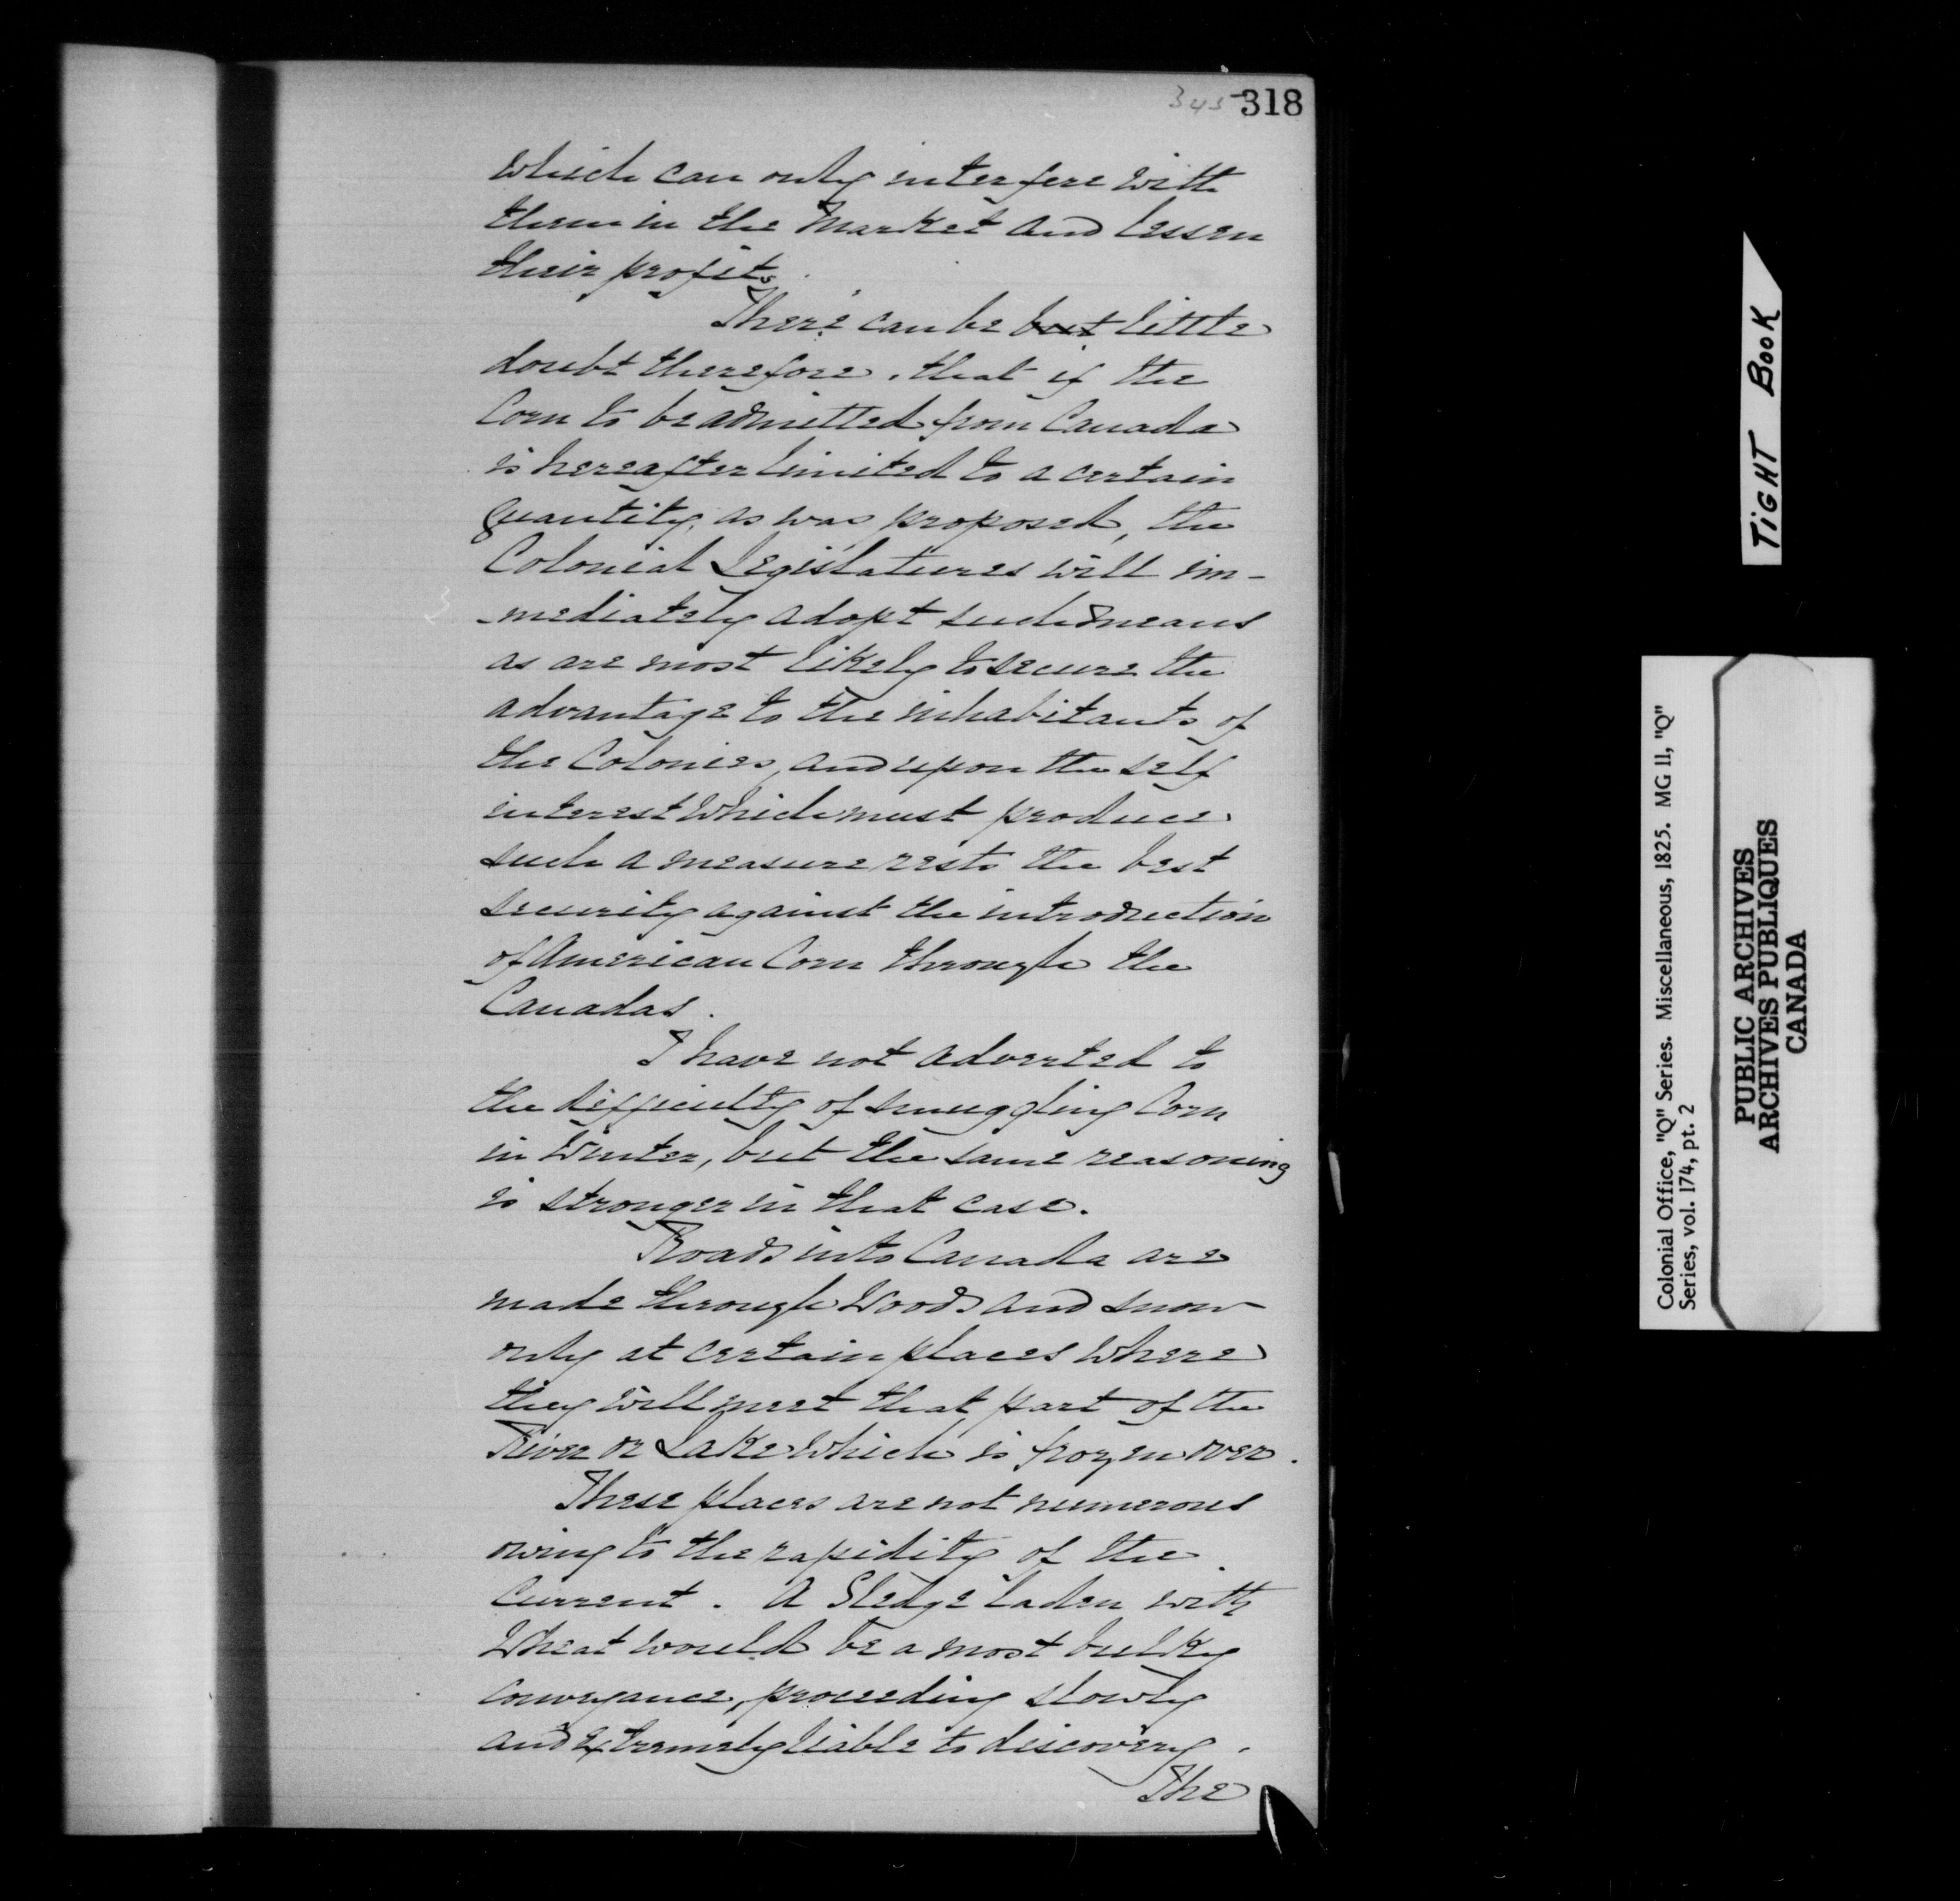 345 318
which can only interfere with
them in the Market and lessen
their profits.
There can be but little
doubt therefore, that if the
Corn to be admitted from Canada
is hereafter limited to a certain
quantity, as was proposed, the
Colonial Legislatures will im-
-mediately adopt such means
as are most likely to secure the
advantage to the inhabitants of
the Colonies, and upon the self
interest which must produce
such a measure rests the best
security against the introduction
of American Corn through the
Canadas.
I have not adverted to
the difficulty of smuggling Corn
in Winter, but the same reasoning
is stronger in that case.
Roads into Canada are
made through Woods and snow
only at certain places where
they will meet that part of the
River or Lake which is frozen over.
These places are not numerous
owing to the rapidity of the
Current. A Sledge laden with
Wheat would be a most bulky
conveyance, proceeding slowly
and extremely liable to discovery.
The
TIGHT BOOK
Colonial Office, "Q" Series. Miscellaneous, 1825. MG 11, "Q"
Series, vol. 174, pt. 2
PUBLIC ARCHIVES
ARCHIVES PUBLIQUES
CANADA